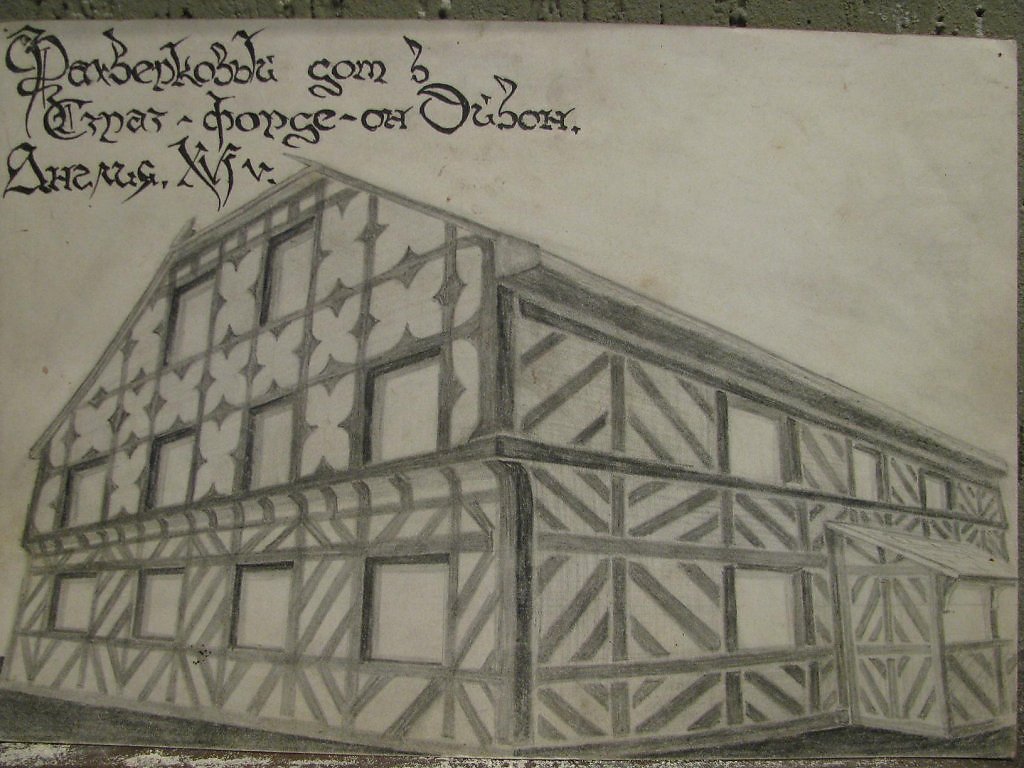 Фахверковый дом в
Страт-форде-он Эйвон.
Англия. XVI v.